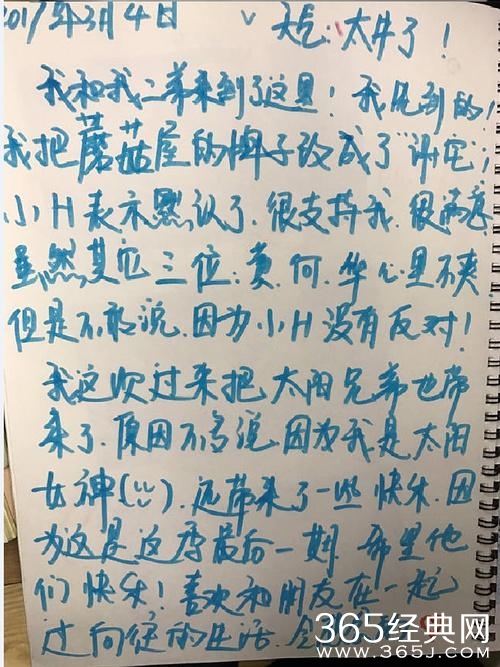 2017年3月4日 天气:太升了!
我和我二弟来到了这里!我见到的!
我把蘑菇屋的牌子改成了“谢宅”!
小H表示默认了.很支持我.很满意
虽然其他三位:黄.何.华心里不爽
但是不敢说.因为小H没有反对!
我这次过来把太阳兄弟也带
来了.原因不多说.因为我是太阳
女神(ü).还带来了一些快乐.因
为这是这季最后一期.希望他
们快乐!喜欢和朋友在一起
过向往的生活.
365经典网
WWW.365J.COM